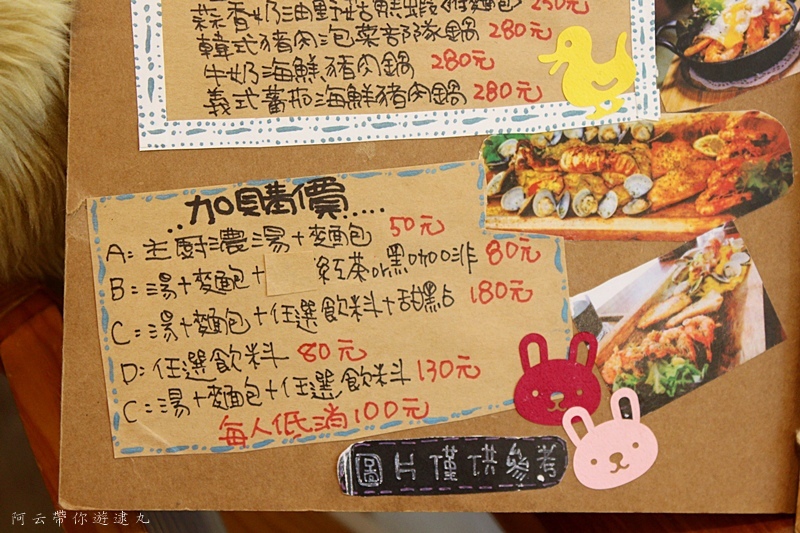 蒜香奶油野菇鮮蝦(附麵包) 250元
韓式豬肉泡菜部隊鍋 280元
牛奶海鮮豬肉鍋 280元
義式蕃茄海鮮豬肉鍋 280元
..加購價.....
A: 主廚濃湯+麵包 50元
B: 湯+麵包+ 紅茶or黑咖啡 80元
C: 湯+麵包+任選飲料+甜點 180元
D: 任選飲料 80元
C: 湯+麵包+任選飲料 130元
每人低消100元
圖片僅供參考
阿云帶你遊逮丸